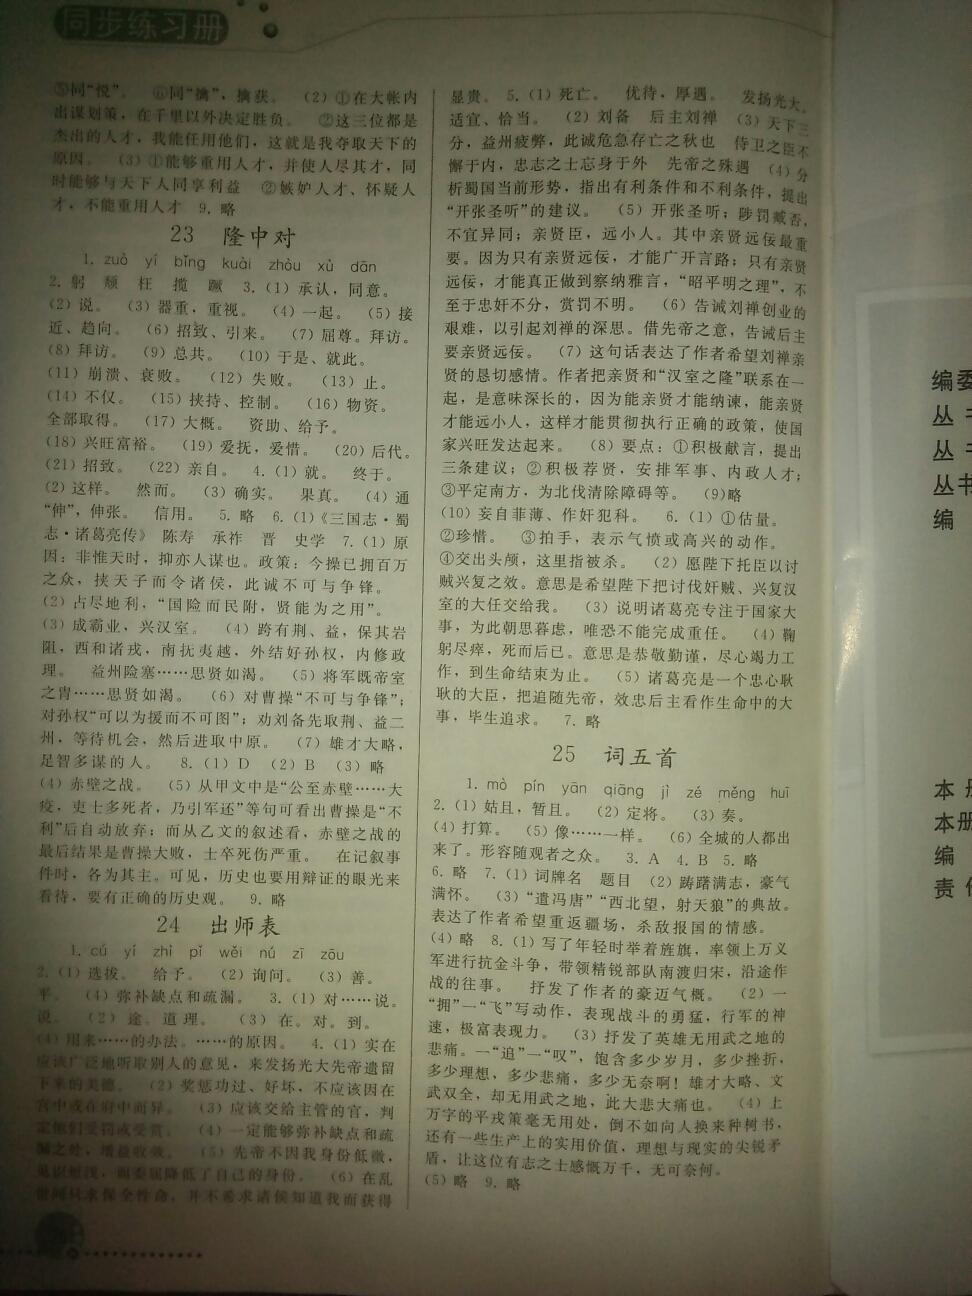 同步练习册
⑤同“悦”。 ⑥同“擒”，擒获。 (2)①在大帐内
出谋划策，在千里以外决定胜负。 ②这三位都是
杰出的人才，我能任用他们，这就是我夺取天下的
原因。 (3)①能够重用人才，并使人尽其才，同
时能够与天下人同享利益 ②嫉妒人才、怀疑人
才，不能重用人才 9. 略
23 隆中对
1. zuǒ yí bīng kuài zhòu xù dān
2. 躬 颓 枉 揽 蹶 3. (1)承认，同意。
(2)说。 (3)器重，重视。 (4)一起。 (5)接
近、趋向。 (6)招致、引来。 (7)屈尊。拜访。
(8)拜访。 (9)总共。 (10)于是、就此。
(11)崩溃、衰败。 (12)失败。 (13)止。
(14)不仅。 (15)挟持、控制。 (16)物资。
全部取得。 (17)大概。 资助、给予。
(18)兴旺富裕。 (19)爱抚，爱惜。 (20)后代。
(21)招致。 (22)亲自。 4. (1)就。 终于。
(2)这样。 然而。 (3)确实。 果真。 (4)通
“伸”，伸张。 信用。 5. 略 6. (1)《三国志·蜀
志·诸葛亮传》 陈寿 承祚 晋 史学 7. (1)原
因：非惟天时，抑亦人谋也。政策：今操已拥百万
之众，挟天子而令诸侯，此诚不可与争锋。
(2)占尽地利，“国险而民附，贤能为之用”。
(3)成霸业，兴汉室。 (4)跨有荆、益，保其岩
阻，西和诸戎，南抚夷越，外结好孙权，内修政
理。 益州险塞……思贤如渴。 (5)将军既帝室
之胄……思贤如渴。 (6)对曹操“不可与争锋”；
对孙权“可以为援而不可图”；劝刘备先取荆、益二
州，等待机会，然后进取中原。 (7)雄才大略，
足智多谋的人。 8. (1)D (2)B (3)略
(4)赤壁之战。 (5)从甲文中是“公至赤壁……大
疫，吏士多死者，乃引军还”等句可看出曹操是“不
利”后自动放弃；而从乙文的叙述看，赤壁之战的
最后结果是曹操大败，士卒死伤严重。 在记叙事
件时，各为其主。可见，历史也要用辩证的眼光来
看待，要有正确的历史观。 9. 略
24 出师表
1. cú yí zhì pǐ wěi nú zī zōu
2. (1)选拔。 给予。 (2)询问。 (3)善。
平。 (4)弥补缺点和疏漏。 3. (1)对……说。
说。 (2)途。道理。 (3)在。对。到。
(4)用来……的办法。……的原因。 4. (1)实在
应该广泛地听取别人的意见，来发扬光大先帝遗留
下来的美德。 (2)奖惩功过、好坏，不应该因在
宫中或在府中而异。 (3)应该交给主管的官，判
定他们受罚或受赏。 (4)一定能够弥补缺点和疏
漏之处，增益收效。 (5)先帝不因我身份低微，
见识短浅，而委屈降低了自己的身份。 (6)在乱
世间只求保全性命，并不希求诸侯知道我而获得
显贵。 5. (1)死亡。 优待，厚遇。 发扬光大。
适宜、恰当。 (2)刘备 后主刘禅 (3)天下三
分，益州疲弊，此诚危急存亡之秋也 侍卫之臣不
懈于内，忠志之士忘身于外 先帝之殊遇 (4)分
析蜀国当前形势，指出有利条件和不利条件，提出
“开张圣听”的建议。 (5)开张圣听；陟罚臧否，
不宜异同；亲贤臣，远小人。其中亲贤远佞最重
要。因为只有亲贤远佞，才能广开言路；只有亲贤
远佞，才能真正做到察纳雅言，“昭平明之理”，不
至于忠奸不分，赏罚不明。 (6)告诫刘禅创业的
艰难，以引起刘禅的深思。借先帝之意，告诫后主
要亲贤远佞。 (7)这句话表达了作者希望刘禅亲
贤的恳切感情。作者把亲贤和“汉室之隆”联系在一
起，是意味深长的，因为能亲贤才能纳谏，能亲贤
才能远小人，这样才能贯彻执行正确的政策，使国
家兴旺发达起来。 (8)要点：①积极献言，提出
三条建议；②积极荐贤，安排军事、内政人才；
③平定南方，为北伐清除障碍等。 (9)略
(10)妄自菲薄、作奸犯科。 6. (1)①估量。
②珍惜。 ③拍手，表示气愤或高兴的动作。
④交出头颅，这里指被杀。 (2)愿陛下托臣以讨
贼兴复之效。意思是希望陛下把讨伐奸贼、兴复汉
室的大任交给我。 (3)说明诸葛亮专注于国家大
事，为此朝思暮虑，唯恐不能完成重任。 (4)鞠
躬尽瘁，死而后已。意思是恭敬勤谨，尽心竭力工
作，到生命结束为止。 (5)诸葛亮是一个忠心耿
耿的大臣，把追随先帝，效忠后主看作生命中的大
事，毕生追求。 7. 略
25 词五首
1. mò pín yān qiāng jì zé měng huī
2. (1)姑且，暂且。 (2)定将。 (3)奏。
(4)打算。 (5)像……一样。 (6)全城的人都出
来了。形容随观者之众。 3. A 4. B 5. 略
6. 略 7. (1)词牌名 题目 (2)踌躇满志，豪气
满怀。 (3)“遣冯唐”“西北望，射天狼”的典故。
表达了作者希望重返疆场，杀敌报国的情感。
(4)略 8. (1)写了年轻时举着旌旗，率领上万义
军进行抗金斗争，带领精锐部队南渡归宋，沿途作
战的往事。 抒发了作者的豪迈气概。 (2)一
“拥”一“飞”写动作，表现战斗的勇猛，行军的神
速，极富表现力。 (3)抒发了英雄无用武之地的
悲痛。一“追”一“叹”，饱含多少岁月，多少挫折，
多少理想，多少悲痛，多少无奈啊！雄才大略、文
武双全，却无用武之地，此大悲大痛也。 (4)上
万字的平戎策毫无用处，倒不如向人换来种树书，
还有一些生产上的实用价值，理想与现实的尖锐矛
盾，让这位有志之士感慨万千，无可奈何。
(5)略 9. 略
编委
丛书
丛书
丛书
编
本册
本册
编
责任